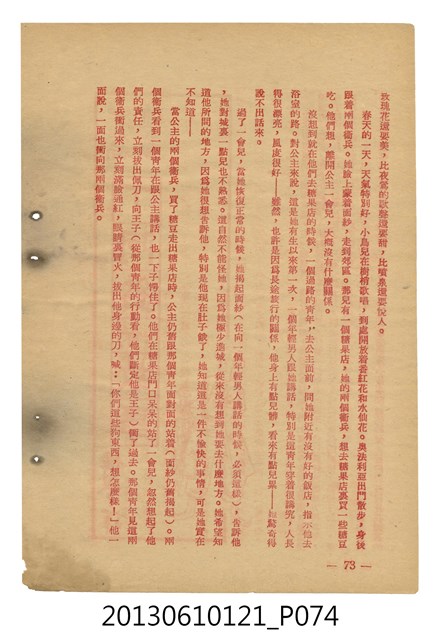 玫瑰花還要美，比夜鶯的歌聲還要甜，比噴泉還要悅人。
春天的一天，天氣特別好，小鳥兒在樹梢歌唱，到處開放着番紅花和水仙花。奧法利亞出門散步，身後
跟着兩個衞兵。她臉上蒙着面紗，走到郊區。那兒有一個糖果店，她的兩個衞兵，想去糖果店裏買一些糖豆
吃。他們想，離開公主一會兒，大概沒有什麼關係。
沒想到就在他們去糖果店的時候，一個過路的青年，去公主面前，問她附近有沒有好的飯店，指示他去
浴室的路。對公主來說，這是她有生以來第一次，一個年輕男人跟她講話，特別是這青年穿着很講究，人長
得很漂亮，風度很好——雖然，也許是因爲長途旅行的關係，他身上有點兒髒，看來有點兒累——她驚奇得
說不出話來。
過了一會兒，當她恢復正常的時候，她揭起面紗（在向一個年輕男人講話的時候，必須這樣），告訴他
，她對城裏一點兒也不熟悉。這自然不能怪她，因爲她極少進城，從來沒有想到她要去什麼地方。她希望知
道他所問的地方，因爲她很想告訴他，特別是他現在肚子餓了，她知道這是一件不愉快的事情，可是她實在
不知道——
當公主的兩個衞兵，買了糖豆走出糖果店時，公主仍舊跟那個青年面對面的站着（面紗仍舊揭起）。兩
個衞兵看到一個青年在跟公主講話，也一下子楞住了。他們在糖果店門口呆呆的站了一會兒，忽然想起了他
們的責任，立刻拔出佩刀，向王子（從那個青年的行動看，他們斷定他是王子）衝了過去。那個青年見這兩
個衞兵衝過來，立刻滿臉通紅，眼睛裏冒火，拔出他身邊的刀，喊：「你們這些狗東西，想怎麼樣！」他一
面說，一面也衝向那兩個衞兵。
— 73 —
20130610121_P074